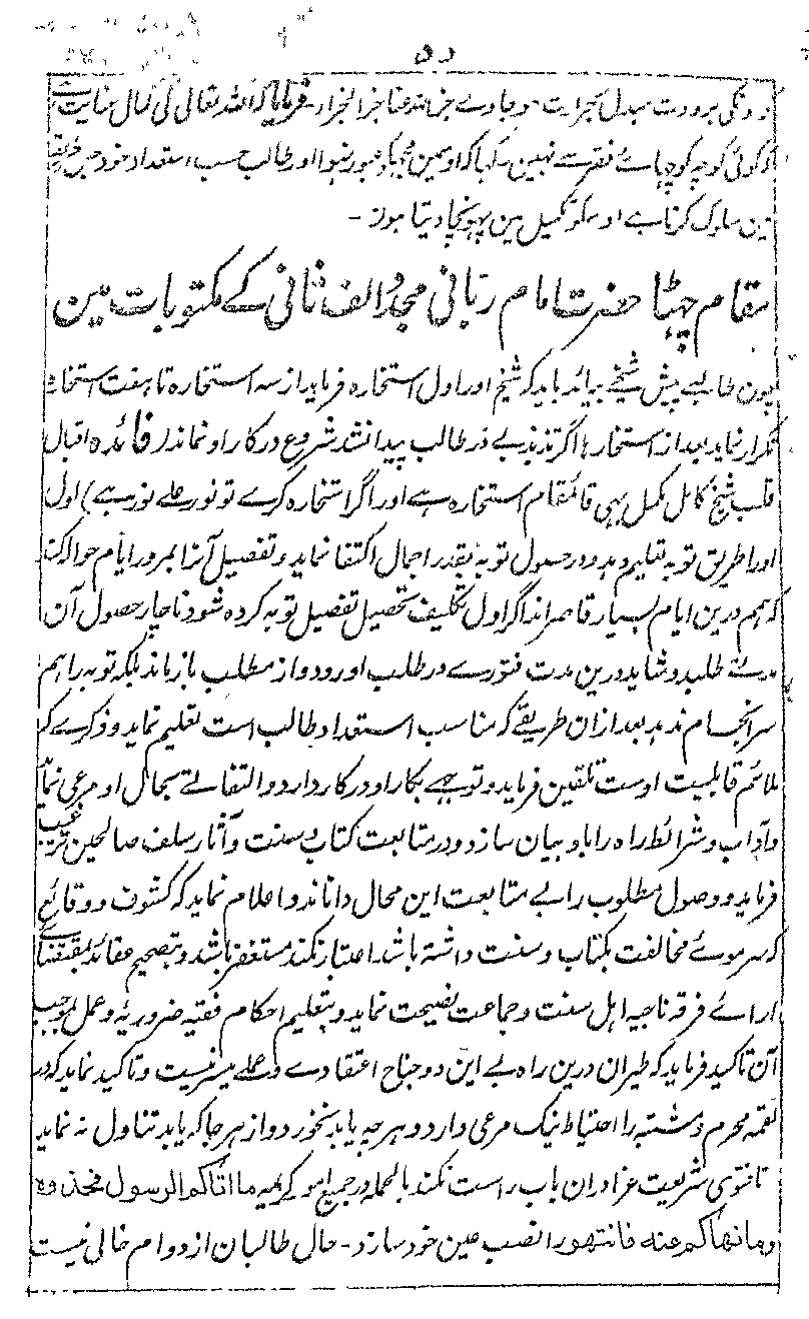 برودت مبدل بحرارت ہو جاوے جزاہ اللہ عنا خیر الجزاء۔ فرمایا کہ اللہ تعالی کی کمال عنایت ہے
کہ کوئی کوچہ کوچہائے فقر سے نہین رہا کہ اوسمین مجہکو عبور نہوا اور طالب حسب استعداد خود جس طریقہ
مین سلوک کرتا ہے اوسکو تکمیل مین پہونچا دیتا ہون۔
مقام چہٹا حضرت امام ربانی مجدد الف ثانی کے مکتوبات مین
چون طالبے پیش شیخے بیاید باید کہ شیخ او را اول استخارہ فرماید از سہ استخارہ تا ہفت استخارہ
تکرار نماید بعد از استخارہا اگر تذبذبے در طالب پیدا نشد شروع در کار او نماند (فائدہ اقبال
قلب شیخ کامل مکمل بہی قائمقام استخارہ ہے اور اگر استخارہ کرے تو نور علے نور ہے) اول
اورا طریق توبہ تعلیم دہد و در حصول توبہ بقدر اجمال اکتفا نماید و تفصیل آنرا بمرور ایام حوالہ کند
کہ ہمم درین ایام بسیار قاصر اند اگر اول تکلیف تحصیل تفصیل توبہ کردہ شود ناچار حصول آن
مدتے طلبد و شاید درین مدت فتورے در طلب او رود و از مطلب باز ماند بلکہ توبہ را ہم
سر انجام ندہد بعد ازان طریقے کہ مناسب استعداد طالب است تعلیم نماید و ذکرے کہ
ملائم قابلیت اوست تلقین فرماید و توجہے بکار او در کار دارد و التفاتے بحال او مرعی نماید
و آداب و شرائط راہ را با و بیان سازد و در متابعت کتاب و سنت و آثار سلف صالحین ترغیب
فرماید و وصول مطلوب را بے متابعت این محال داناند و اعلام نماید کہ کشوف و وقائع
کہ سر موئے مخالفت بکتاب و سنت داشتہ باشد اعتبار نکند مستغفر باشد و بتصحیح عقائد بمقتضائے
ارائے فرقہ ناجیہ اہل سنت و جماعت نصیحت نماید و بتعلیم احکام فقہیہ ضروریہ و عمل بموجب
آن تاکید فرماید کہ طیران درین راہ بے این دو جناح اعتقادے و عملے میسر نیست و تاکید نماید کہ در
لقمہ محرم و مشتبہ را احتیاط نیک مرعی دارد و ہر چہ یابد نخورد و از ہر جا کہ یابد تناول نہ نماید
تا فتوی شریعت غرا دران باب راست نکند بالجملہ در جمیع امور کریمہ ما اتاکم الرسول فخذوہ
وما نھاکم عنہ فانتھوا را نصب عین خود سازد۔ حال طالبان از دو ام خالی نیست